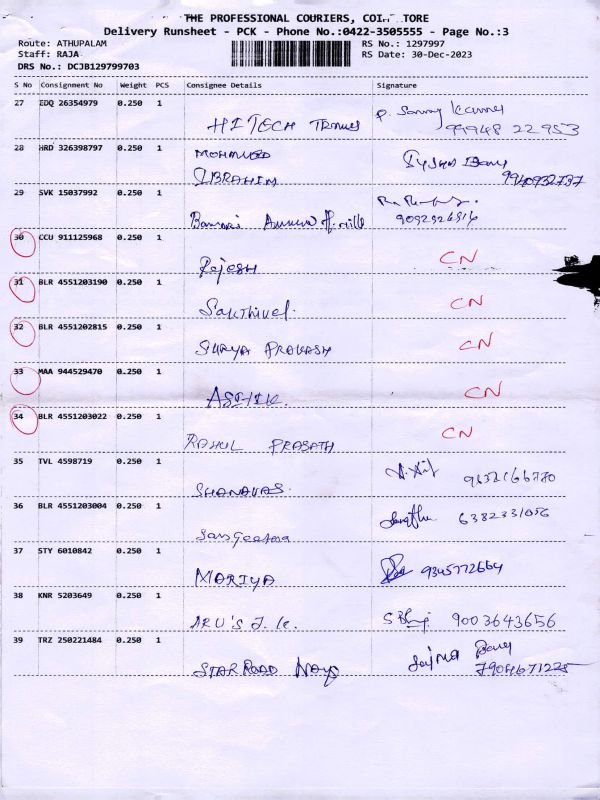 THE PROFESSIONAL COURIERS, TORE
Delivery Runsheet - PCK - Phone No.:0422-3505555 - Page No.:3
Route: ATHUPALAM RS No.: 1297997
Staff: RAJA RS Date: 30-Dec-2023
DRS No.: DCJB129799703
S No Consignment No Weight PCS Consignee Details Signature
27 EDQ 26354979 0.250 1
HITECH 99948 22953
28 HRD 326398797 0.250 1 MOHAMMED
IBRAHIM 9940932737
29 SVK 15037992 0.250 1
Bannari 9092926516
30 CCU 911125968 0.250 1 CN
Rajesh
31 BLR 4551203190 0.250 1 CN
Sakthivel.
32 BLR 4551202815 0.250 1 CN
SURYA PRAKASH
33 MAA 944529470 0.250 1 CN
ASHIK.
34 BLR 4551203022 0.250 1 CN
RAHUL PRASATH
35 TVL 4598719 0.250 1
SHANAVAS.
36 BLR 4551203004 0.250 1 6382331056
Sangeetha
37 STY 6010842 0.250 1 9345772664
MARIYA
38 KNR 5203649 0.250 1 9003643656
ARU'S J.K.
39 TRZ 250221484 0.250 1
STAR ROAD